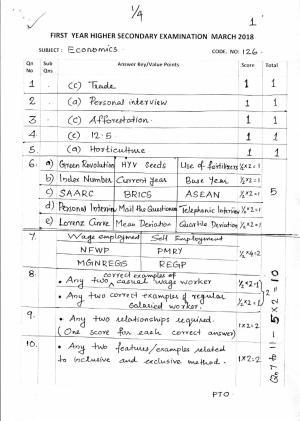 1/4
1
FIRST YEAR HIGHER SECONDARY EXAMINATION MARCH 2018
SUBJECT : Economics. CODE. NO: 126.
Qn No Sub Qns Answer Key/Value Points Score Total
1 (c) Trade 1 1
2 (a) Personal interview 1 1
3 (c) Afforestation. 1 1
4 (c) 12.5 1 1
5. (a) Horticulture 1 1
6. a) Green Revolution HYV Seeds Use of fertilizers ½x2=1
b) Index Number Current year Base Year ½x2=1
c) SAARC BRICS ASEAN ½x2=1 5
d) Personal Interview Mail the Questionnaire Telephonic Interview ½x2=1
e) Lorenz Curve Mean Deviation Quartile Deviation ½x2=1
7. Wage employment Self Employment
NFWP PMRY ½x4=2
MGNREGS REGP
8. • Any two correct examples of casual wage worker ½x2=1
• Any two correct examples of regular salaried worker. ½x2=1 2
9. • Any two relationships required. 1x2=2
(One score for each correct answer)
10. • Any two features/examples related 1x2=2
to inclusive and exclusive method.
Qn 7 to 11 - 5 x 2 = 10
PTO